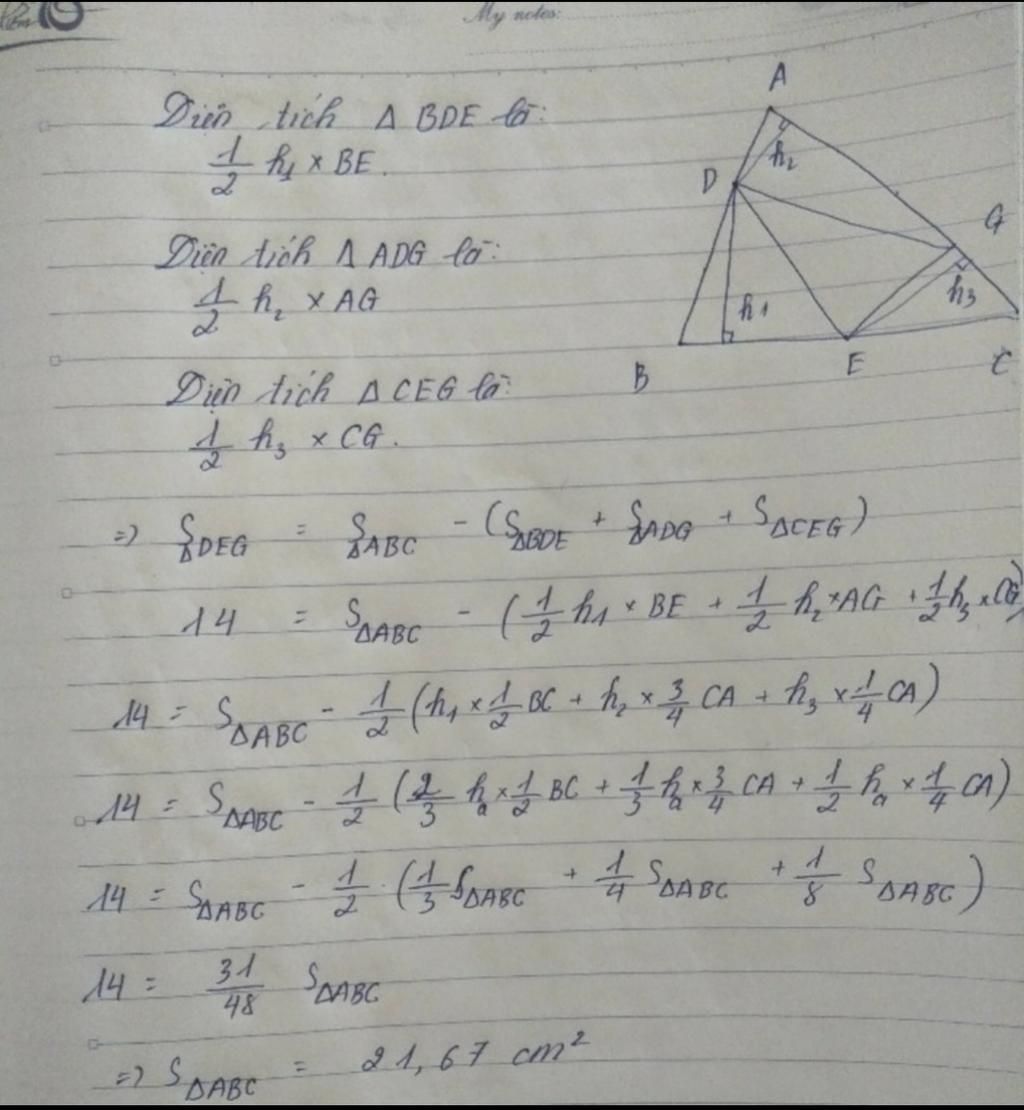 My notes:
Diện tích Δ BDE là:
1/2 h₁ × BE.
Diện tích Δ ADG là:
1/2 h₂ × AG
Diện tích Δ CEG là:
1/2 h₃ × CG.
=> S_ΔDEG = S_ΔABC - (S_ΔBDE + S_ΔADG + S_ΔCEG)
14 = S_ΔABC - (1/2 h₁ × BE + 1/2 h₂ × AG + 1/2 h₃ × CG)
14 = S_ΔABC - 1/2 (h₁ × 1/2 BC + h₂ × 3/4 CA + h₃ × 1/4 CA)
14 = S_ΔABC - 1/2 (2/3 hₐ × 1/2 BC + 1/3 hₐ × 3/4 CA + 1/2 hₐ × 1/4 CA)
14 = S_ΔABC - 1/2 . (1/3 S_ΔABC + 1/4 S_ΔABC + 1/8 S_ΔABC)
14 = 31/48 S_ΔABC
=> S_ΔABC = 21,67 cm²
A
h₂
D
G
h₁
h₃
B
E
C